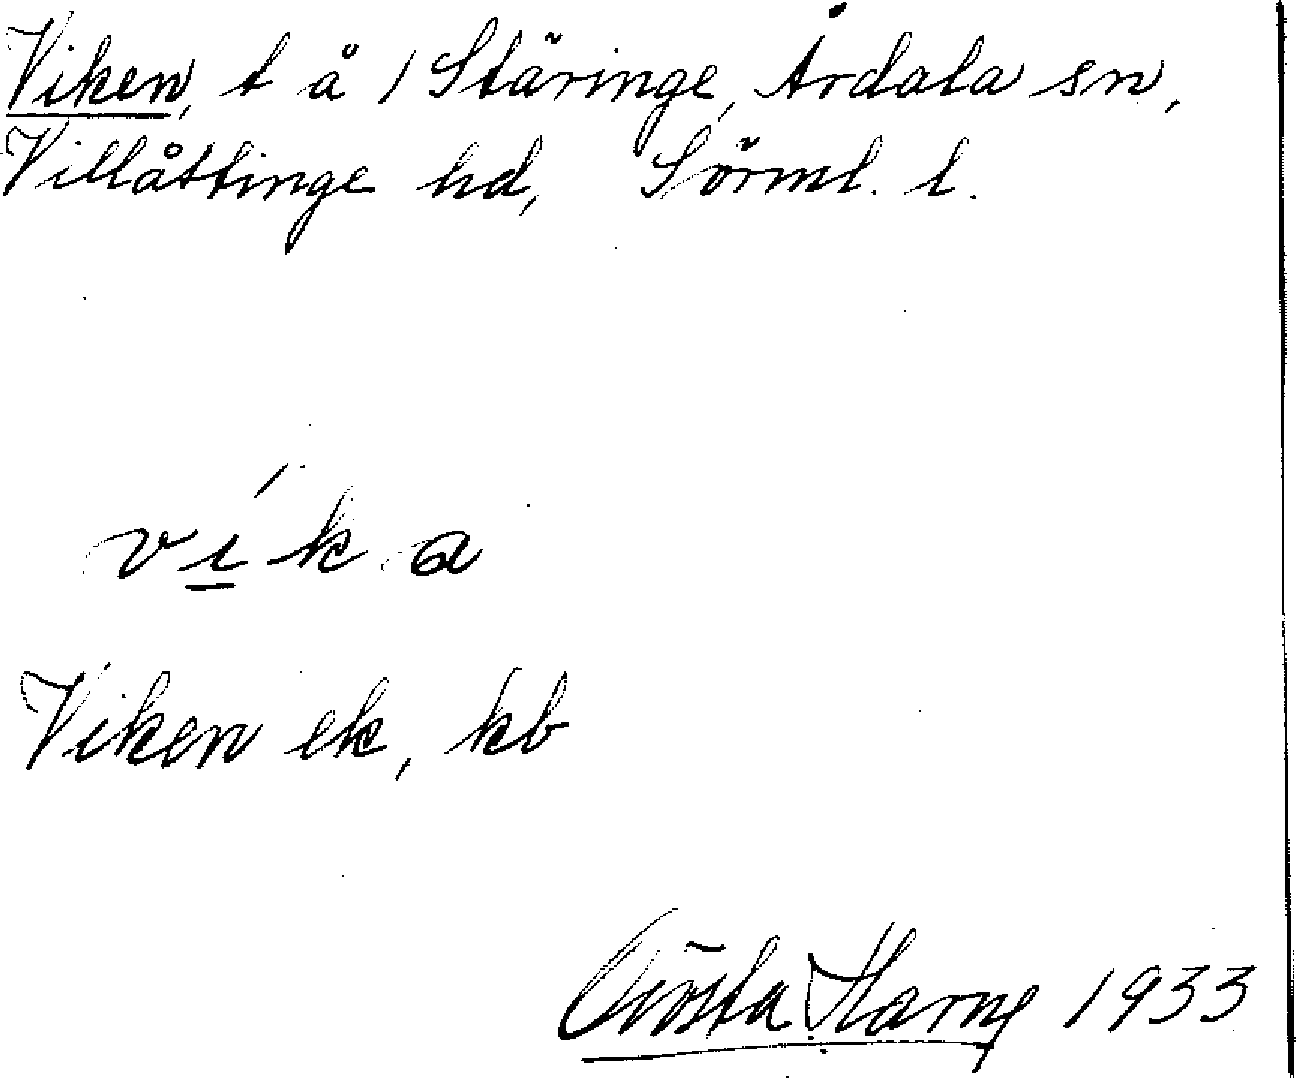 Viken, t å 1 Stäringe, Årdala sn,
Villåttinge hd, Sörml. l.
víka
Viken ek, kb
Gösta Harne 1933